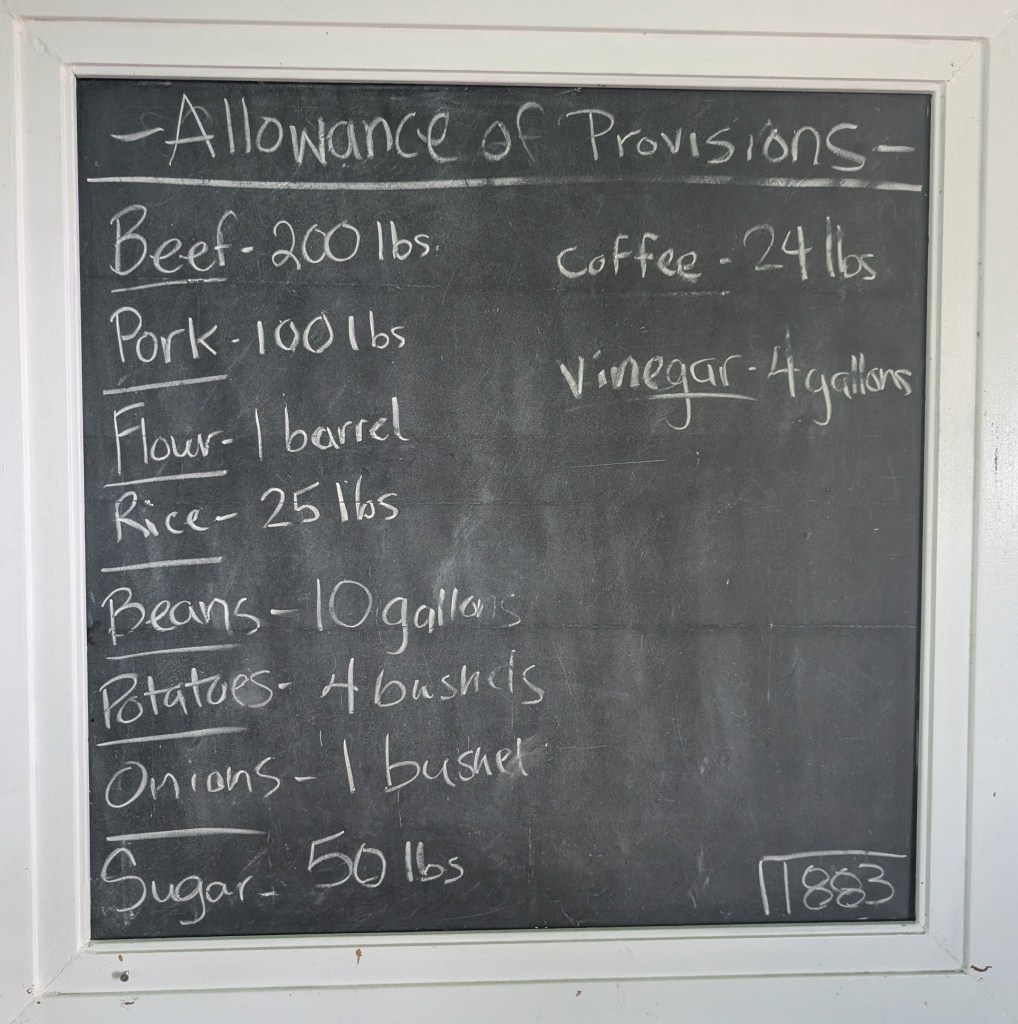 - Allowance of Provisions -
Beef - 200 lbs.
Pork - 100 lbs
Flour - 1 barrel
Rice - 25 lbs
Beans - 10 gallons
Potatoes - 4 bushels
Onions - 1 bushel
Sugar - 50 lbs
coffee - 24 lbs
vinegar - 4 gallons
1883